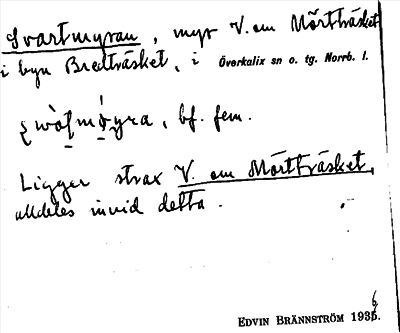 Svartmyran, myr V. om Mörtträsket
i byn Bredträsket, i Överkalix sn o. tg. Norrb. l.
bf. fem.
Ligger strax V. om Mörtträsket,
alldeles invid detta.
EDVIN BRÄNNSTRÖM 1936.